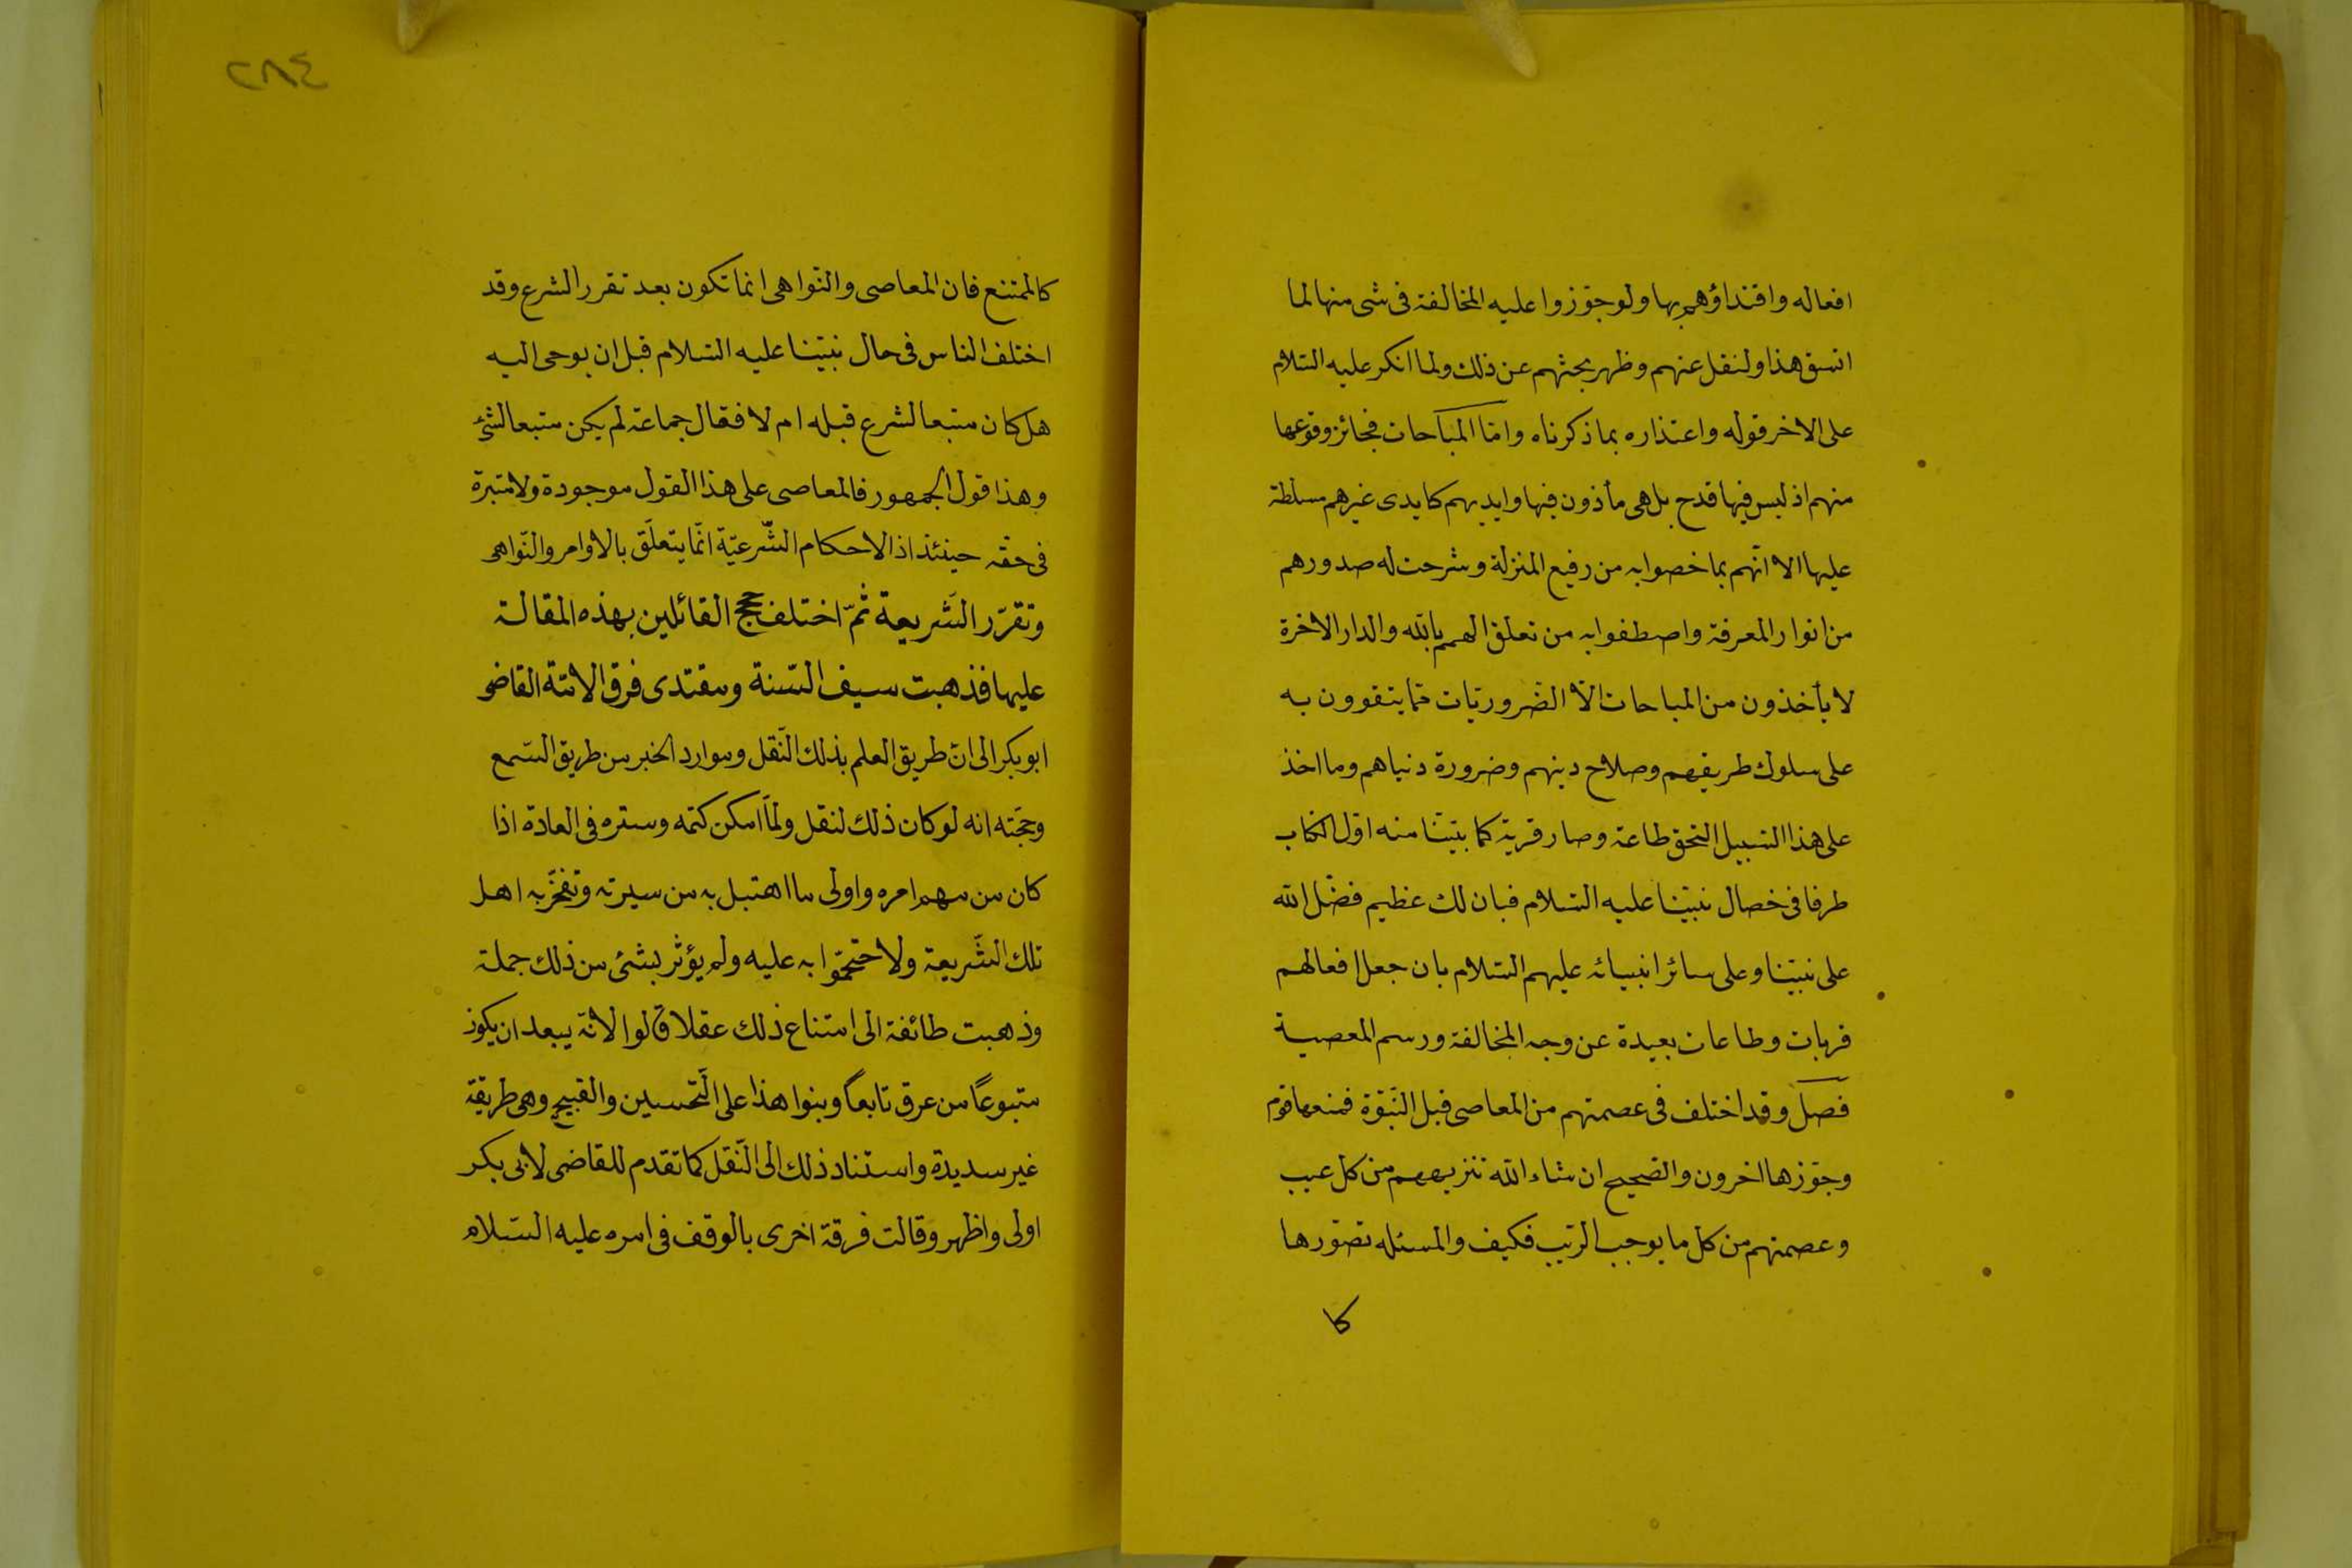 افعاله واقتداؤهم بها ولو جوّزوا عليه المخالفة فى شى منها لما
اتسق هذا ولنقل عنهم وظهر بحثهم عن ذلك ولما انكر عليه السّلام
على الاخر قوله واعتذاره بما ذكرناه وامّا المباحات فجائز وقوعها
منهم اذ ليس فيها قدح بل هى مأذون فيها وايديهم كايدى غيرهم مسلطة
عليها الا انّهم بما خصوا به من رفيع المنزلة وشرحت له صدورهم
من انوار المعرفة واصطفوا به من تعلق الهمم بالله والدار الاخرة
لا يأخذون من المباحات الّا الضّروريّات ممّا يتقوون به
على سلوك طريقهم وصلاح دينهم وضرورة دنياهم وما اخذ
على هذا السّبيل التحق طاعة وصار قربة كما بيّنّا منه اوّل الكتاب
طرفا فى خصال نبيّنا عليه السّلام فبان لك عظيم فضل الله
على نبيّنا وعلى سائر انبيائه عليهم السّلام بان جعل افعالهم
قربات وطاعات بعيدة عن وجه المخالفة ورسم المعصية
فصل وقد اختلف فى عصمتهم من المعاصى قبل النّبوّة فمنعها قوم
وجوّزها اخرون والصّحيح ان شاء الله تنزيههم من كل عيب
وعصمتهم من كل ما يوجب الريب فكيف والمسئله تصوّرها
كا
٢٨٤
كالممتنع فان المعاصى والنّواهى انما تكون بعد تقرر الشرع وقد
اختلف الناس فى حال نبيّنا عليه السّلام قبل ان يوحى اليه
هل كان متبعا لشرع قبله ام لا فقال جماعة لم يكن متبعا لشئ
وهذا قول الجمهور فالمعاصى على هذا القول موجودة ولا متبرة
فى حقّه حينئذ اذ الاحكام الشّرعيّة انّما يتعلّق بالاوامر والنّواهى
وتقرّر الشّريعة ثمّ اختلف حجج القائلين بهذه المقالة
عليها فذهبت سيف السّنة ومقتدى فرق الامّة القاضى
ابو بكر الى انّ طريق العلم بذلك النّقل وموارد الخبر من طريق السّمع
وحجّته انه لو كان ذلك لنقل ولمّا امكن كتمه وستره فى العادة اذا
كان من مهم امره واولى ما اهتبل به من سيرته وتفخّر به اهل
تلك الشّريعة ولاحتجّوا به عليه ولم يؤثر بشئ من ذلك جملة
وذهبت طائفة الى امتناع ذلك عقلا قالوا لانّه يبعد ان يكون
متبوعًا من عرف تابعًا وبنوا هذا على التّحسين والقبيح وهى طريقة
غير سديدة واستناد ذلك الى النّقل كما تقدم للقاضى لابى بكر
اولى واظهر وقالت فرقة اخرى بالوقف فى امره عليه السّلام